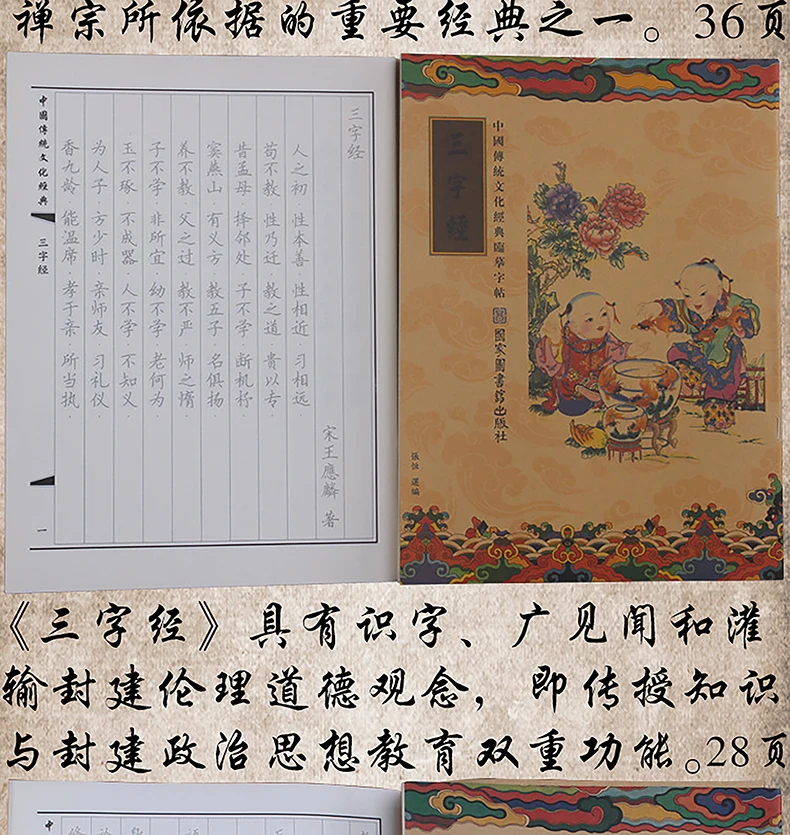 禅宗所依据的重要经典之一。36页
三字经
宋王應麟 著
人之初·性本善·性相近·习相远·
苟不教·性乃迁·教之道·贵以专·
昔孟母·择邻处·子不学·断机杼·
窦燕山·有义方·教五子·名俱扬·
养不教·父之过·教不严·师之惰·
子不学·非所宜·幼不学·老何为·
玉不琢·不成器·人不学·不知义·
为人子·方少时·亲师友·习礼仪·
香九龄·能温席·孝于亲·所当执·
中國傳統文化經典 三字经 一
中國傳統文化經典臨摹字帖 國家圖書館出版社
三字經
張 選編
《三字经》具有识字、广见闻和灌
输封建伦理道德观念，即传授知识
与封建政治思想教育双重功能。28页
中